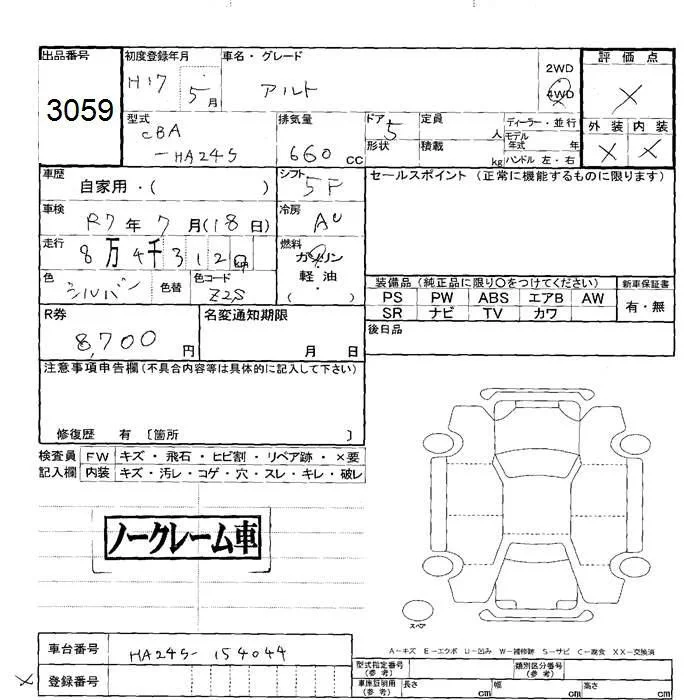 出品番号 初度登録年月 車名・グレード 評価点
3059 H17 5月 アルト 2WD 4WD ×
型式 排気量 ドア 定員 ディーラー・並行 外装 内装
CBA 5 人 モデル年式 年 × ×
-HA24S 660 CC 形状 積載 kg ハンドル 左・右
車歴 シフト セールスポイント (正常に機能するものに限ります)
自家用・( ) 5F
車検 冷房
R7年 7月(18日) AC
走行 燃料
8万4千312 km ガソリン
色 色替 色コード 軽油 装備品 (純正品に限り〇をつけてください) 新車保証書
シルバン Z2S ( ) PS PW ABS エアB AW 有・無
R券 名変通知期限 SR ナビ TV カワ
8,700円 月 日 後日品
注意事項申告欄(不具合内容等は具体的に記入して下さい)
修復歴 有 〔箇所 〕
検査員 FW キズ・飛石・ヒビ割・リペア跡・×要
記入欄 内装 キズ・汚レ・コゲ・穴・スレ・キレ・破レ
ノークレーム車
スペア
A-キズ E-エクボ U-凹み W-補修跡 S-サビ C-腐食 XX-交換済
車台番号 HA24S-154044 型式指定番号(参考) 類別区分番号(参考)
× 登録番号 車庫証明用(参考) 長さ cm 幅 cm 高さ cm